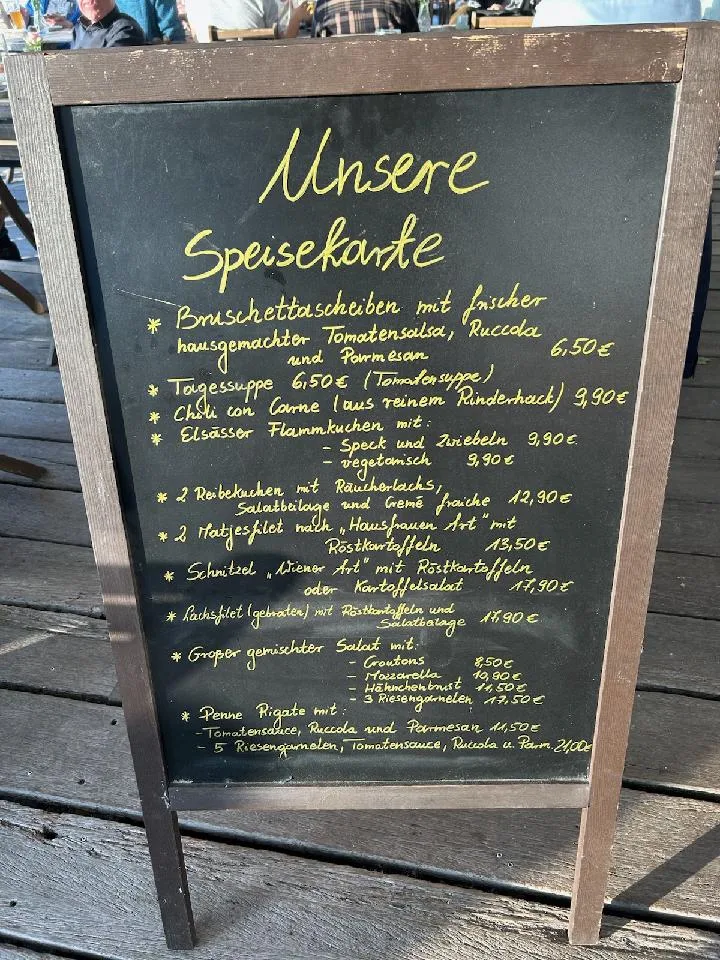 Unsere
Speisekarte
* Bruschettascheiben mit frischer
hausgemachter Tomatensalsa, Ruccola
und Parmesan 6,50€
* Tagessuppe 6,50€ (Tomatensuppe)
* Chili con Carne (aus reinem Rinderhack) 9,90€
* Elsässer Flammkuchen mit:
- Speck und Zwiebeln 9,90€
- vegetarisch 9,90€
* 2 Reibekuchen mit Räucherlachs,
Salatbeilage und Cremé fraiche 12,90€
* 2 Matjesfilet nach „Hausfrauen Art" mit
Röstkartoffeln 13,50€
* Schnitzel „Wiener Art" mit Röstkartoffeln
oder Kartoffelsalat 17,90€
* Lachsfilet (gebraten) mit Röstkartoffeln und
Salatbeilage 17,90€
* Großer gemischter Salat mit:
- Croutons 8,50€
- Mozzarella 10,90€
- Hähnchenbrust 11,50€
- 3 Riesengarnelen 17,50€
* Penne Rigate mit:
- Tomatensauce, Ruccola und Parmesan 11,50€
- 5 Riesengarnelen, Tomatensauce, Ruccola u. Parm. 21,00€